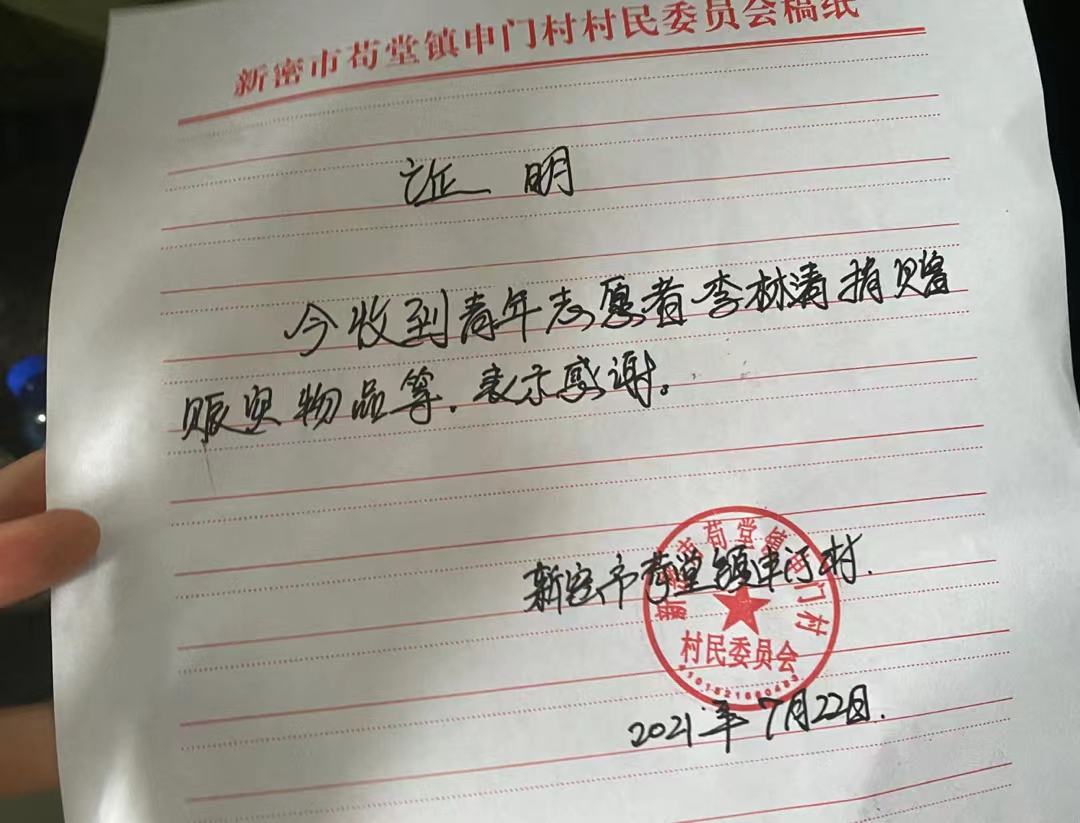 新密市苟堂镇申门村村民委员会稿纸
证明
今收到青年志愿者李林清捐赠
赈灾物品等.表示感谢。
新密市苟堂镇申门村
村民委员会
新密市苟堂镇申门村.
2021年7月22日.